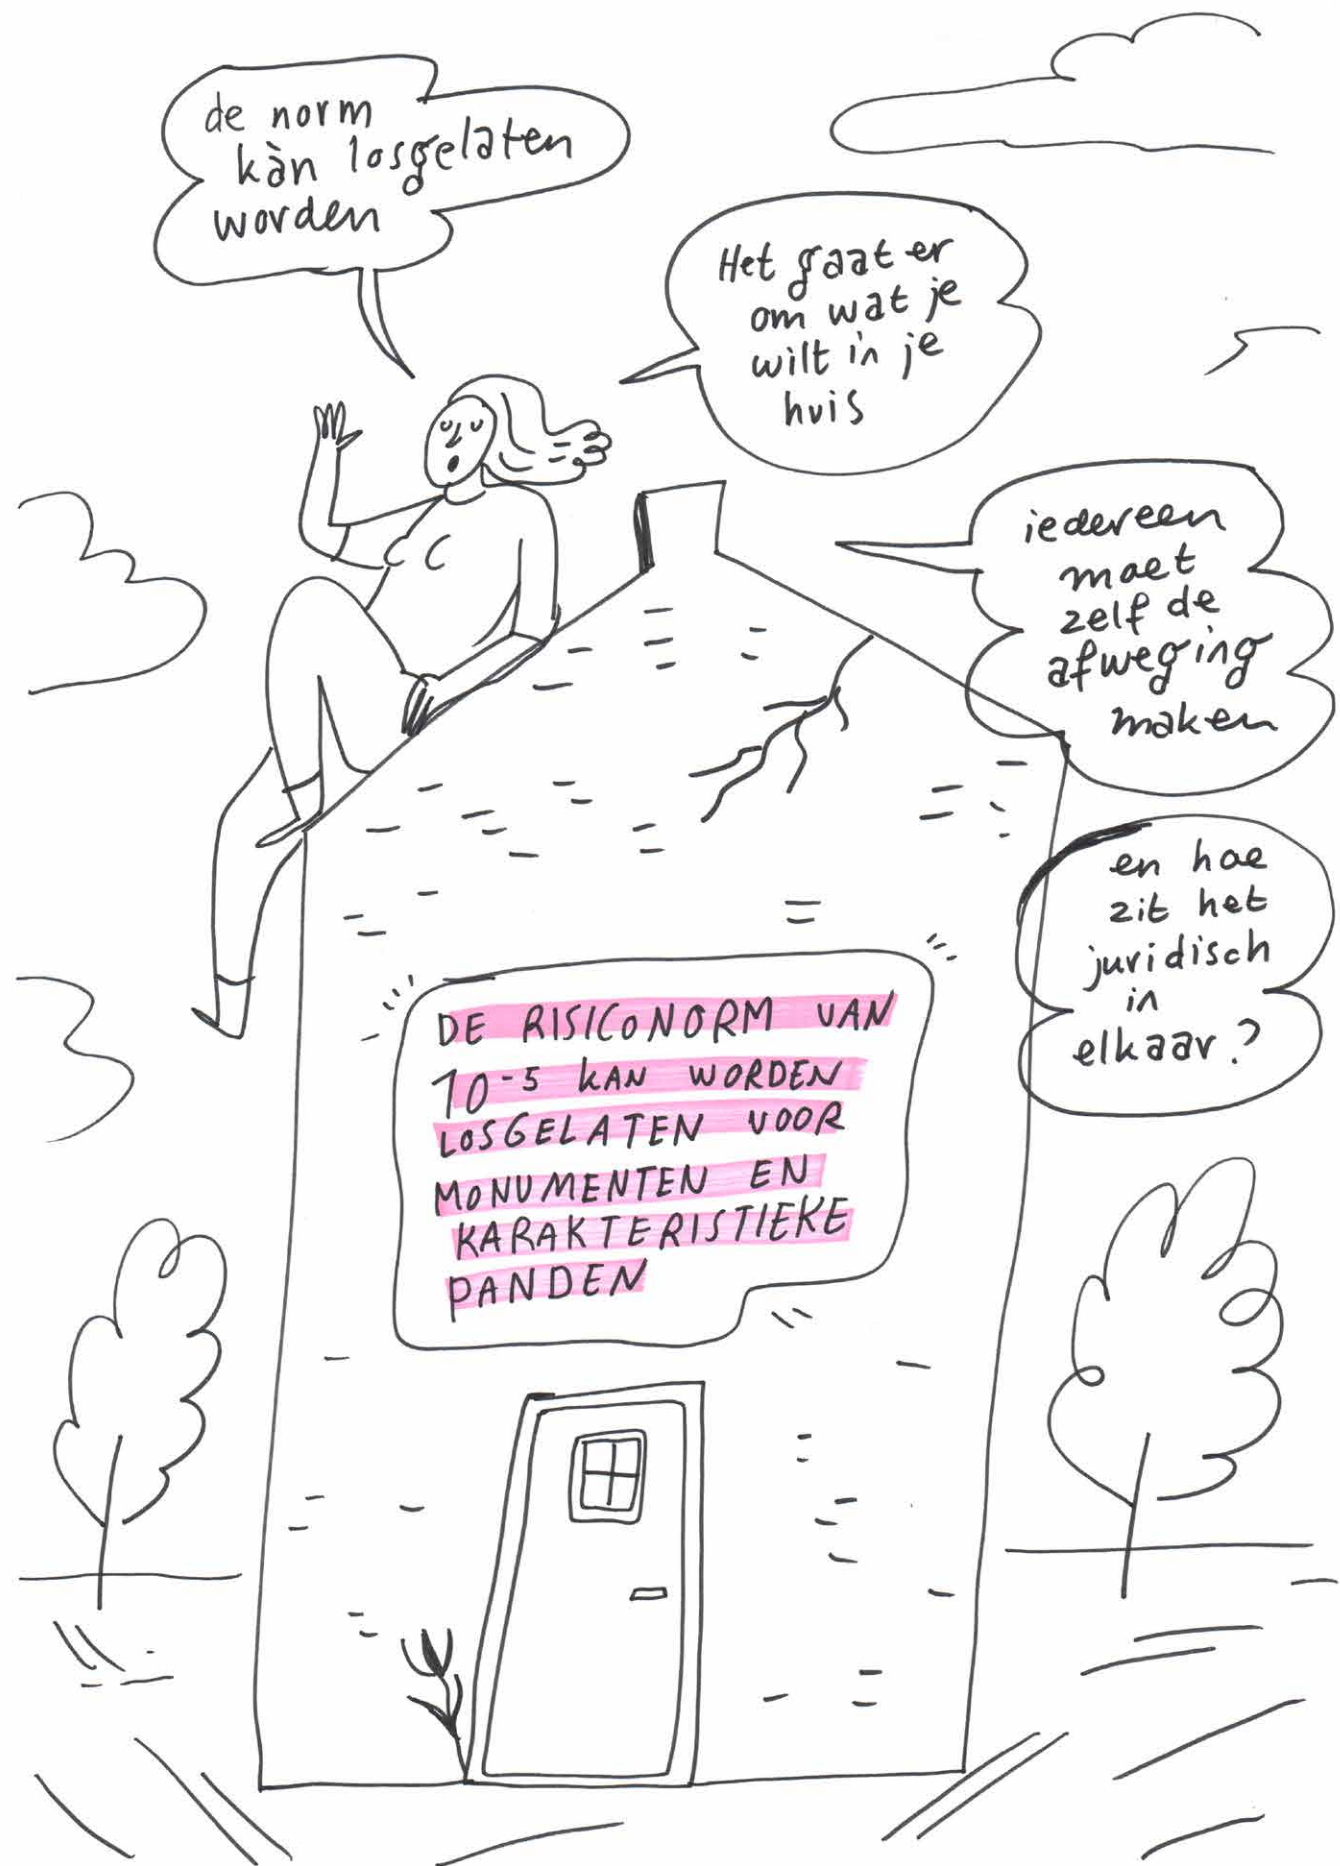 de norm
kàn losgelaten
worden
Het gaat er
om wat je
wilt in je
huis
iedereen
moet
zelf de
afweging
maken
en hoe
zit het
juridisch
in
elkaar?
DE RISICONORM VAN
10-5 KAN WORDEN
LOSGELATEN VOOR
MONUMENTEN EN
KARAKTERISTIEKE
PANDEN